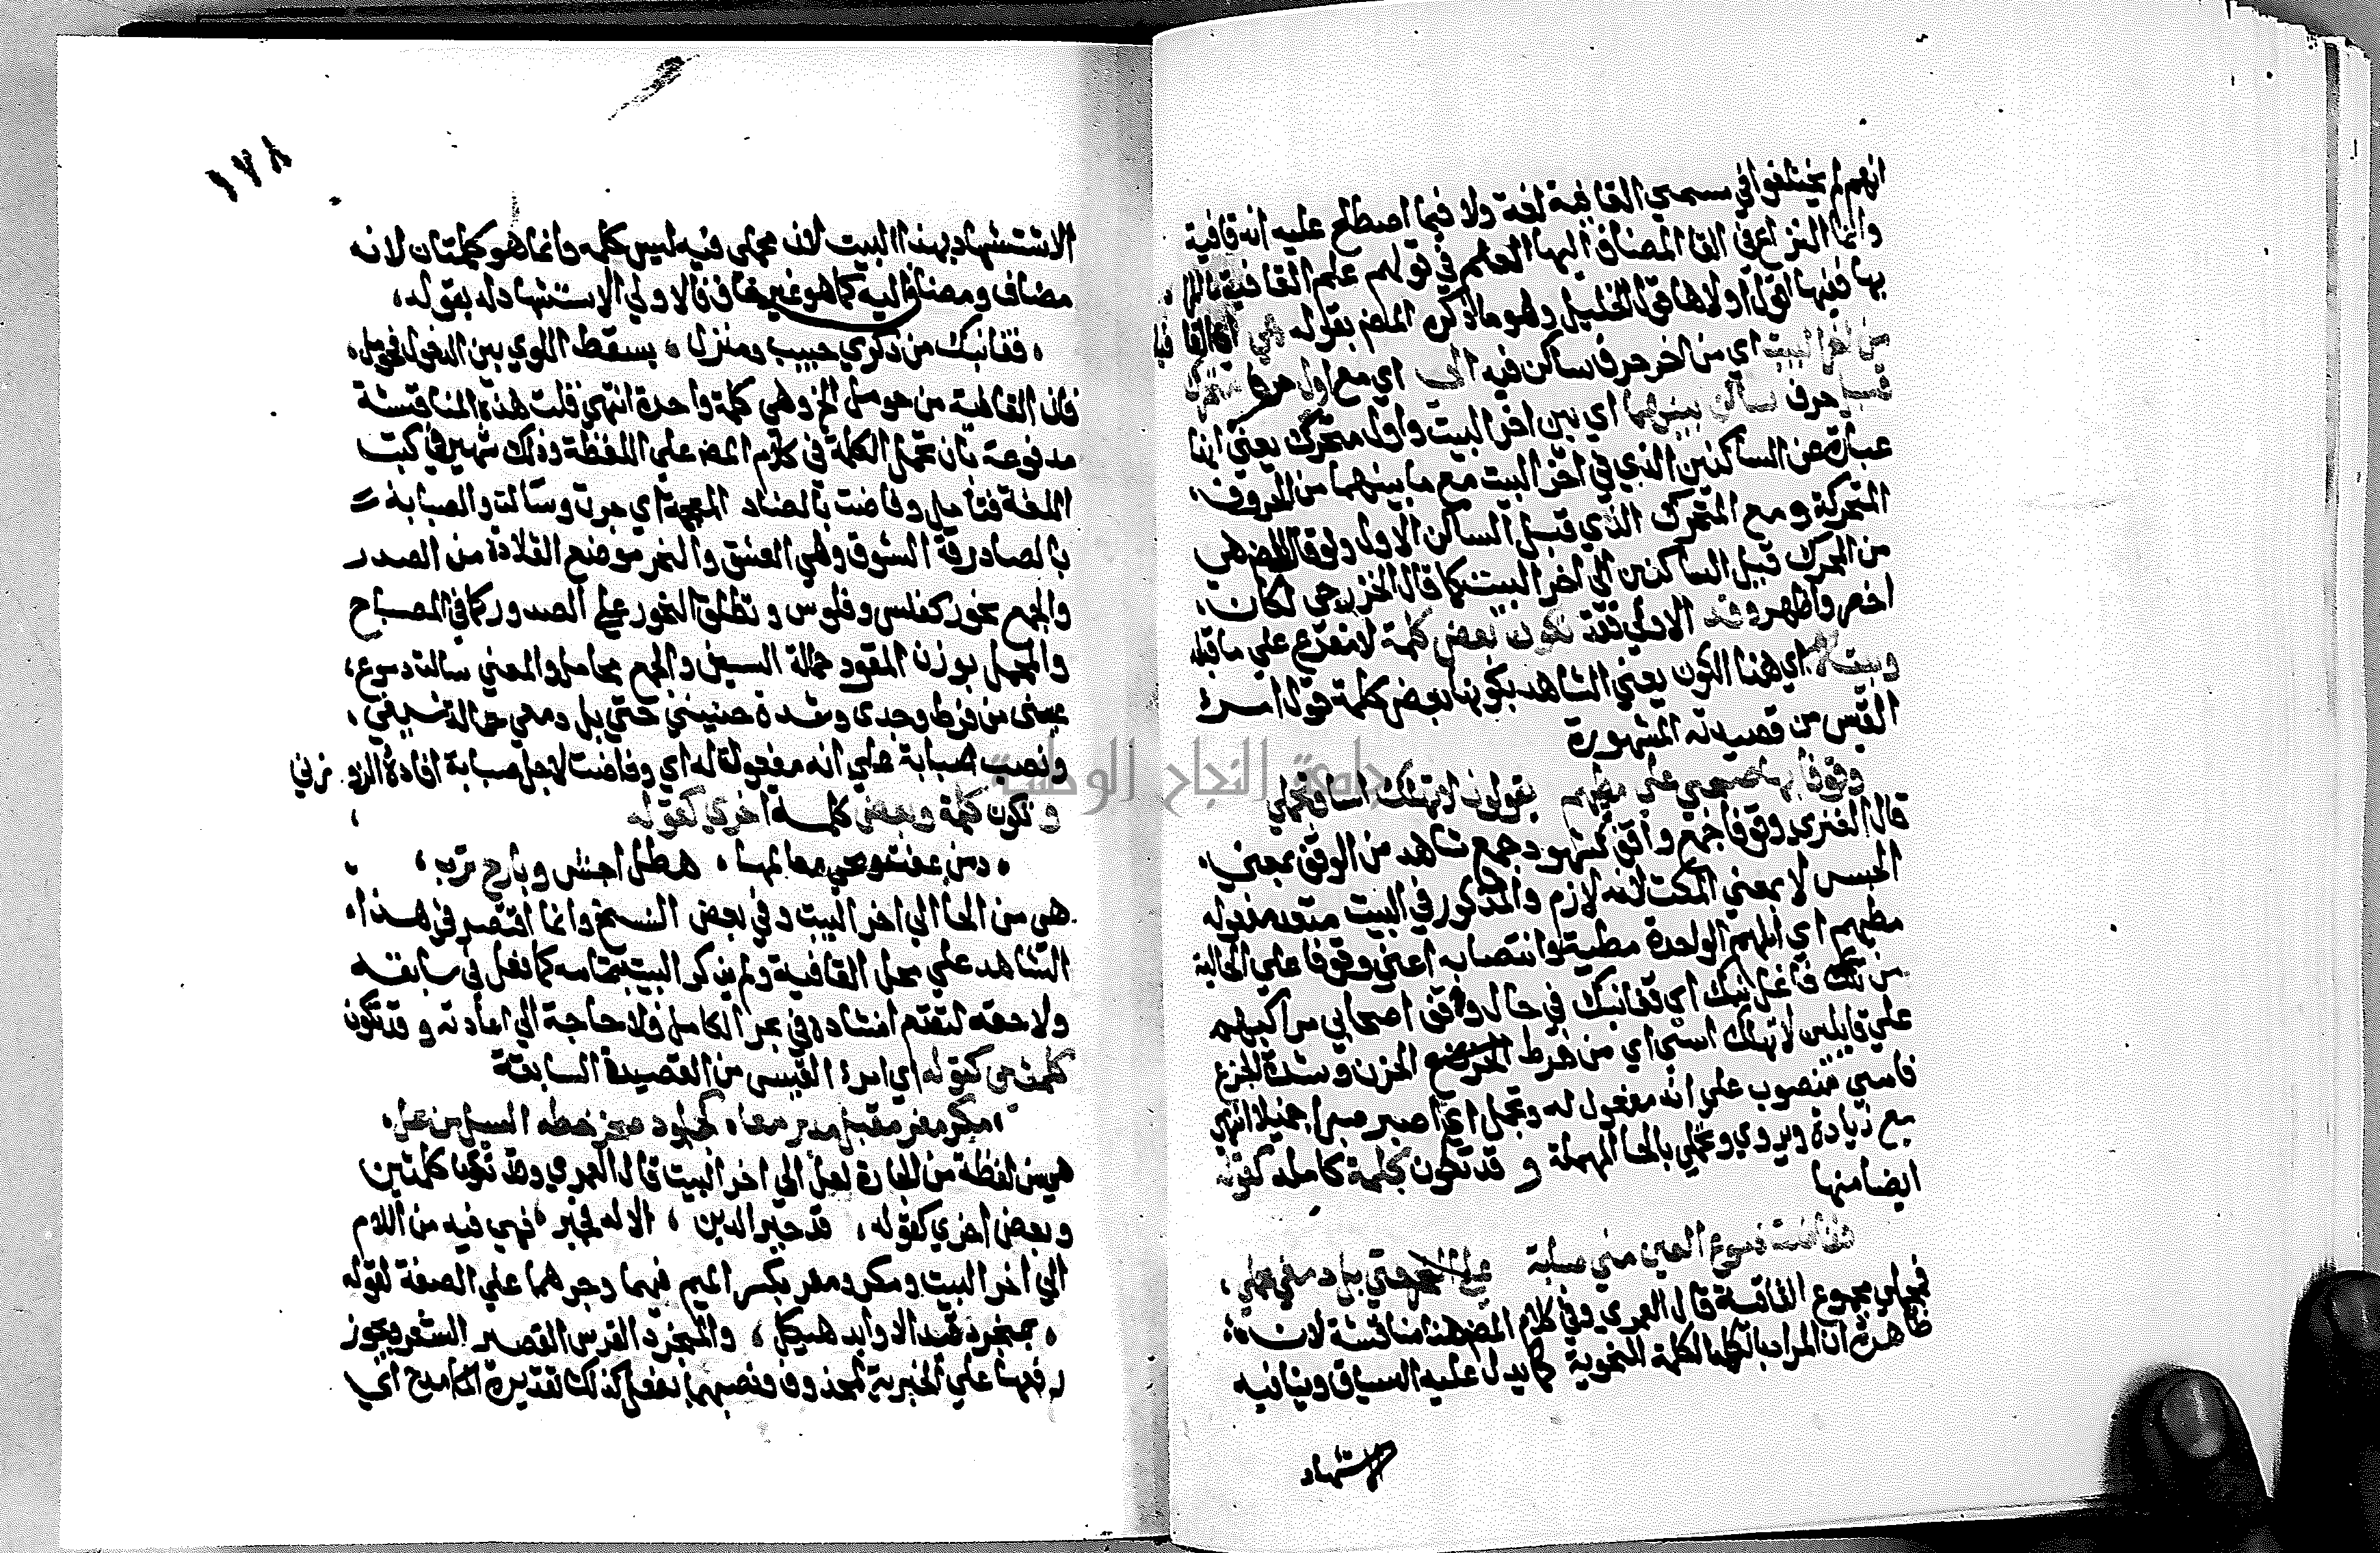 انهم لم يختلفوا في مسمي القافية لغة ولا فيما اصطلح عليه انه قافية
وانما النزاع في القا المضاف اليها العلم في قولهم علم القافية
بها ففيها اقوال اولاها قول الخليل وهو ما ذكره المص بقوله هي
من اخر البيت اي من اخر حرف ساكن فيه الي اي مع اول حرف متحرك
قبل حرف ساكن بينهما اي بين اخر البيت واول متحرك يعني انها
عبارة عن الساكنين الذي في اخر البيت مع ما بينهما من الحروف
المتحركة ومع المتحرك الذي قبل الساكن الاول ولو قال المص هي
من المحرك قبل الساكنين الي اخر البيت كما قال الخزرجي لكان
اخصر واظهر وقد الاولي فقد تكون بعض كلمة لا مفرع علي ما قبله
وبيت اي هذا الكون يعني الشاهد بكونها بعض كلمة قول امرئ
القيس من قصيدته المشهورة
وقوفا بها صحبي علي مطيهم يقولون لا تهلك اسا وتجملي
قال الغنري وقوفا جمع واقف كشهود جمع شاهد من الوقف بمعني
الحبس لا بمعني المكث لانه لازم والمذكور في البيت متعد مفعوله
مطيهم اي ابلهم الواحدة مطية وانتصابه اعني وقوفا علي الحالية
من فاعل نبك اي قفا نبك في حال وقف اصحابي مراكبهم
علي قايلين لا تهلك اسي اي من فرط الحزن وشدة الجزع
فاسي منصوب علي انه مفعول له وتجمل اي اصبر صبرا جميلا انتهي
مع زيادة ويروي وتحملي بالحا المهملة وقد تكون كلمة كاملة كقوله
ايضا منها
ففاضت دموع العين مني صبابة علي النحر حتي بل دمعي محملي
فمحملي مجموع القافية قال العمري وفي كلام المص هنا مناقشة لان
ظاهره ان المراد بالكلمة الكلمة النحوية كما يدل عليه السياق وينافيه
الاستشهاد
١٧٨
الاستشهاد بهذا البيت لان محملي فيه ليس كلمه وانما هو كلمتان لانه
مضاف ومضاف اليه كما هو غير خاف فالاولي الاستشهاد له بقوله
قفا نبك من ذكري حبيب ومنزل بسقط اللوي بين الدخول فحومل
فان القافية من حومل الخ وهي كلمة واحدة انتهي قلت هذه المناقشة
مدفوعة بان تحمل الكلمة في كلام المص علي اللفظة وذلك شهير في كتب
اللغة فتامل وفاضت بالضاد المعجمة اي جرت وسالت والصبابة
بالصاد رقة الشوق وهي العشق والنحر موضع القلادة من الصدر
والجمع نحور كفلس وفلوس وتطلق النحور علي الصدور كما في المصباح
والمحمل بوزن المقود حمالة السيف والجمع محامل والمعني سالت دموع
عيني من فرط وجدي وشدة حنيني حتي بل دمعي حمالة سيفي
ونصب صبابة علي انه مفعول له اي وفاضت لاجل صبابة افاده الزوزني
وتكون كلمة وبعض كلمة اخري كقوله
دمن عفت ومحي معالمها هطل اجش وبارح ترب
هي من الحا الي اخر البيت وفي بعض النسخ وانما اقتصر في هذا
الشاهد علي محل القافية ولم يذكر البيت بتمامه كما فعل في سابقه
ولاحقه لتقدم انشاده في بحر الكامل فلا حاجة الي اعادته وقد تكون
كلمتين كقوله اي امرء القيس من القصيدة السابقة
مكر مفر مقبل مدبر معا كجلمود صخر حطه السيل من عل
هي من لفظة من الجارة لعل الي اخر البيت قال العمري وقد تكون كلمتين
وبعض اخري كقوله قد جبر الدين الاله فجبر فهي فيه من اللام
الي اخر البيت ومكر ومفر بكسر الميم فيهما وجرهما علي الصفة لقوله
بمنجرد قيد الاوابد هيكل والمنجرد الفرس القصير الشعر ويجوز
رفعها علي الخبرية لمحذوف ونصبهما بفعل كذلك تقديره امدح اي
جامعة النجاح الوطنية